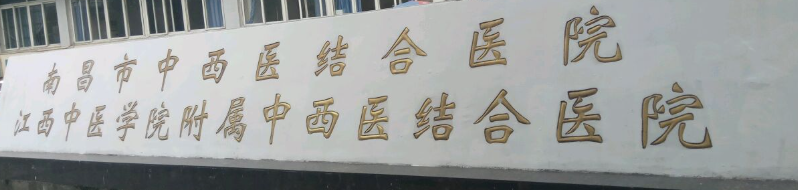 南昌市中西医结合医院
江西中医学院附属中西医结合医院